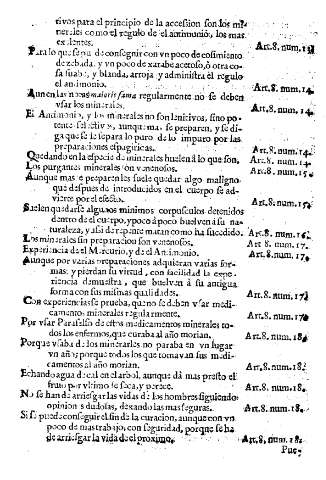 tivos para el principio de la accession son los mi-
nerales como el regulo de el antimonio, los mas
excelentes. Art. 8. num. 13.
Para lo que se puede conseguir con vn poco de cosimiento
de zebada, y vn poco de xarabe acetoso, ò otra co-
sa suabe, y blanda, arroja y administra el regulo
el antimonio. Art. 8. num. 14.
Aun en las mas maioris fama regularmente no se deben
vsar los minerales. Art. 8. num. 14.
El Antimonio, y los minerales no son lenitivos, sino po-
tente selectivos, aunque mas se preparen, y se di-
ga que se separa lo puro de lo impuro por las
preparaciones espagiricas. Art. 8. num. 14.
Quedando en la especie de minerales huelen à lo que son. Art. 8. num. 14.
Los purgantes minerales son vanenosos. Art. 8. num. 15.
Aunque mas se preparen les suele quedar algo maligno
que despues de introducidos en el cuerpo se ad-
vierte por el efecto. Art. 8. num. 15.
Suelen quedarse algunos minimos corpusculos detenidos
dentro de el cuerpo, y poco à poco buelven à su na-
turaleza, y assi de repente matan como ha sucedido. Art. 8. num. 16.
Los minerales sin preparacion son venenosos. Art. 8. num. 17.
Experiencia de el Mercurio, y de el Antimonio. Art. 8. num. 17.
Aunque por varias preparaciones adquieran varias for-
mas, y pierdan su virtud, con facilidad la expe-
riencia demuestra, que buelven à su antigua
forma con sus mismas qualidades. Art. 8. num. 17.
Con experiencias se prueba, que no se deben vsar medi-
camentos minerales regularmente. Art. 8. num. 17.
Por vsar Paracelso de estos medicamentos minerales to-
dos los enfermos, que curaba al año morian. Art. 8. num. 18.
Porque vsaba de los minerales no paraba en vn lugar
vn año; porque todos los que tomavan sus medi-
camentos al año morian. Art. 8. num. 18.
Echando agua de cal en el arbol, aunque dá mas presto el
fruto por vltimo se seca, y perece. Art. 8. num. 18.
No se han de arriesgar las vidas de los hombres siguiendo
opiniones dudosas, dexando las mas seguras. Art. 8. num. 18.
Si se puede conseguir el fin de la curacion, aunque con vn
poco de mas trabajo, con seguridad, porque se ha
de arriesgar la vida de el proximo. Art. 8. num. 18.
Pue-